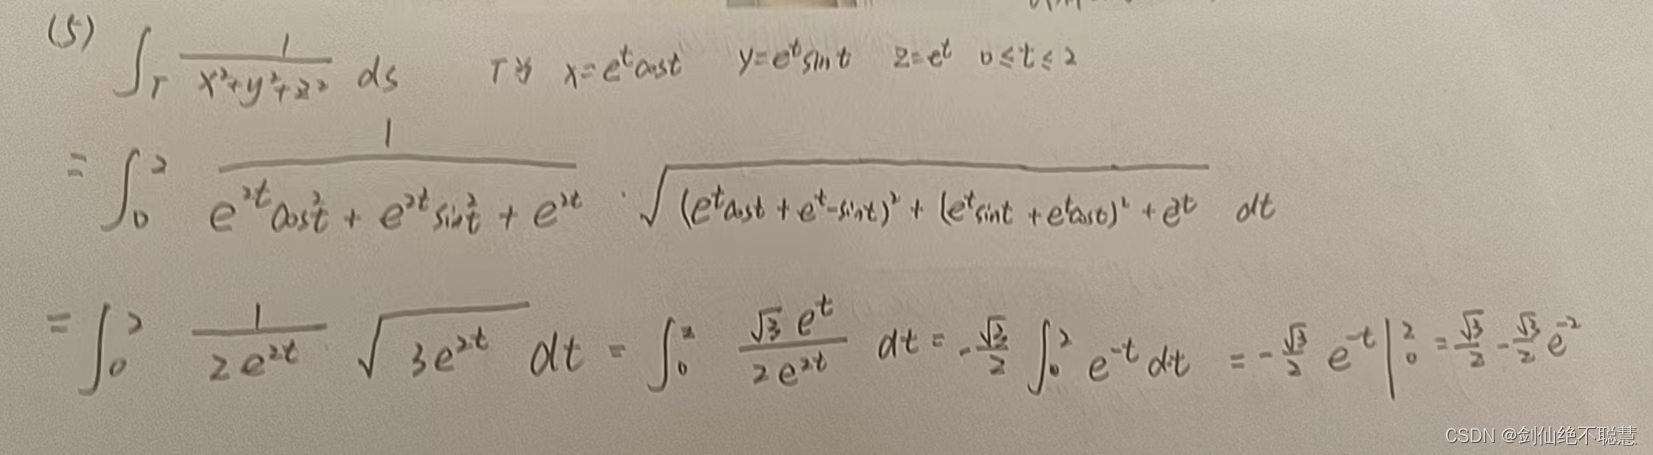 (5) ∫_Γ 1/(x²+y²+z²) ds Γ为 x=e^t cost y=e^t sint z=e^t 0≤t≤2
= ∫_0^2 1/(e^{2t}cos²t + e^{2t}sin²t + e^{2t}) · √((e^t cost + e^t -sint)² + (e^t sint + e^t cost)² + e^{2t}) dt
= ∫_0^2 1/(2e^{2t}) √(3e^{2t}) dt = ∫_0^2 (√3 e^t)/(2e^{2t}) dt = -√3/2 ∫_0^2 e^{-t} dt = -√3/2 e^{-t}|_0^2 = √3/2 - √3/2 e^{-2}
CSDN @剑仙绝不聪慧